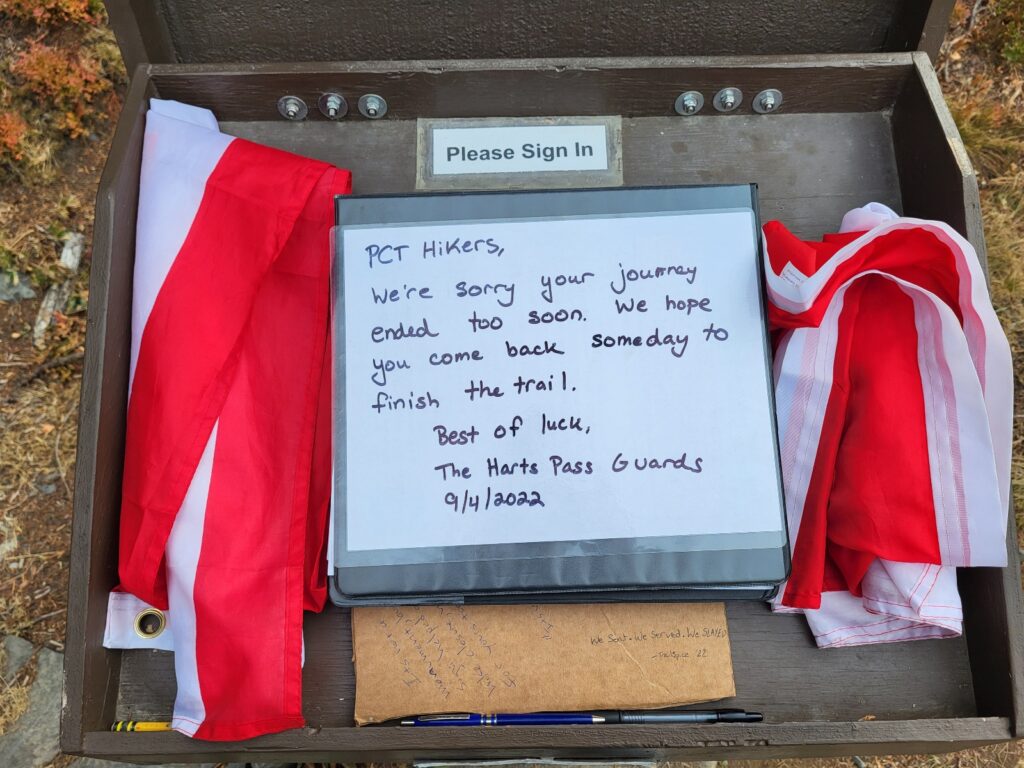 Please Sign In
PCT Hikers,
We're sorry your journey
ended too soon. We hope
you come back someday to
finish the trail.
Best of luck,
The Harts Pass Guards
9/4/2022
We Sat. We Served. We SLAYED
'22